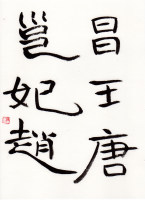 昌王唐
邕妃趙